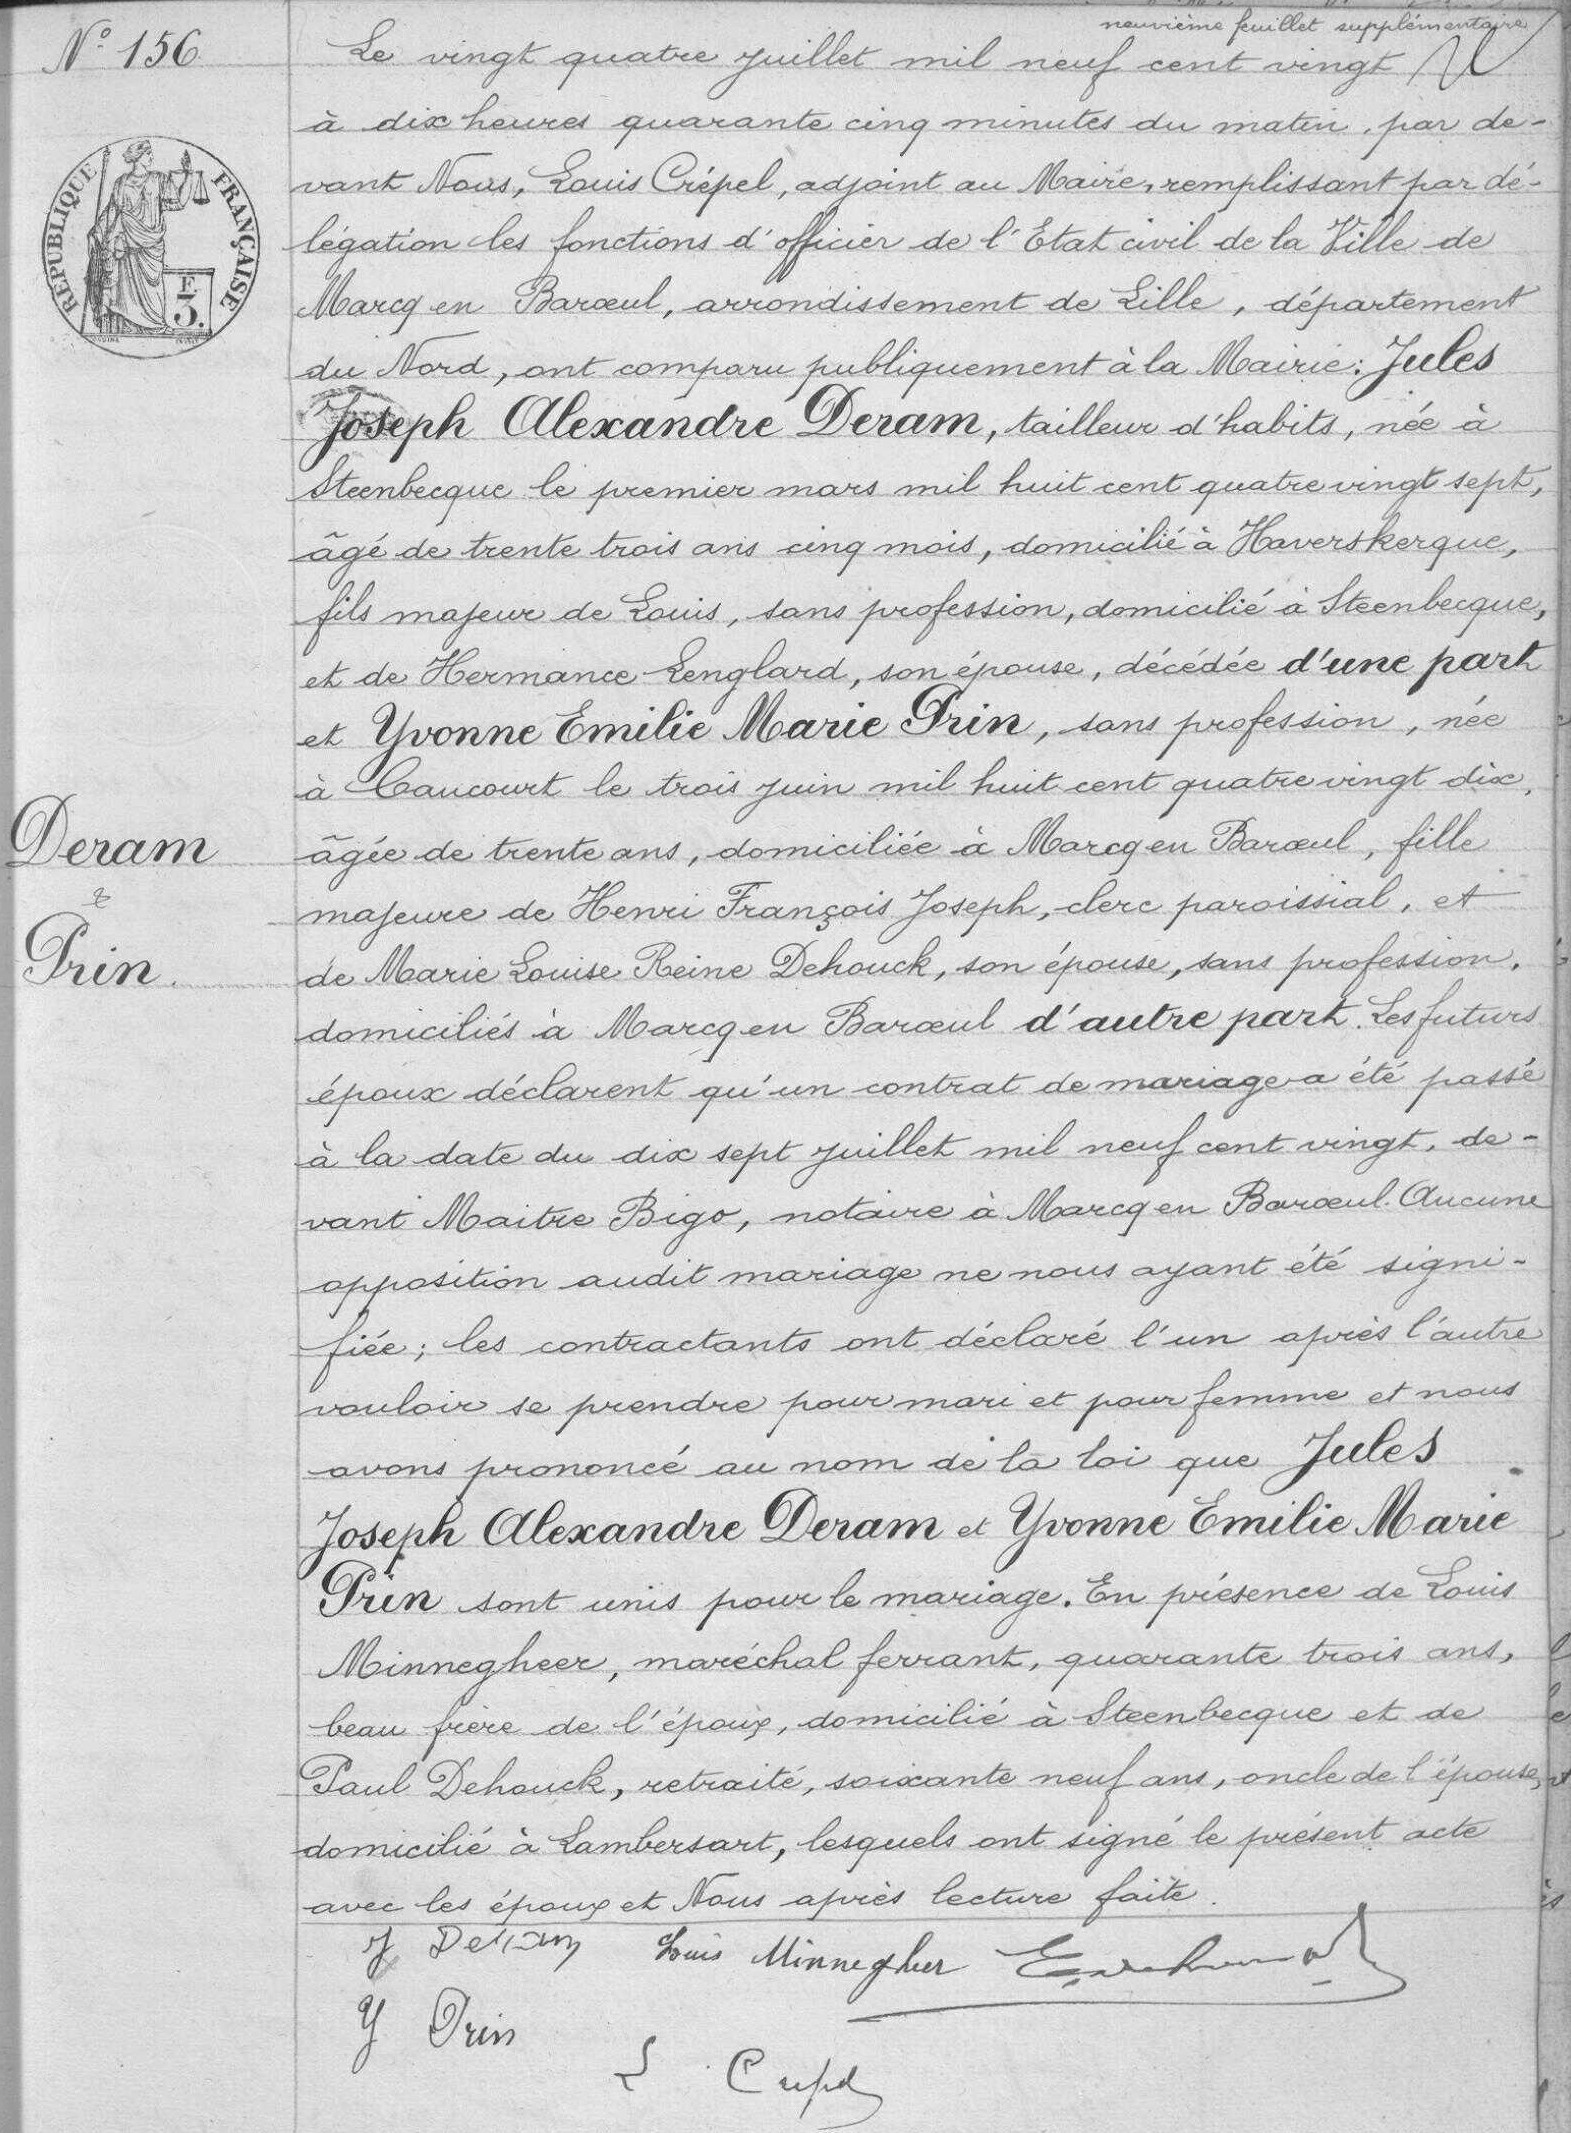 neuvième feuillet supplémentaire
N° 156.
Le vingt quatre juillet mil neuf cent vingt
à dix heures quarante cinq minutes du matin, par de-
vant Nous, Louis Crépel, adjoint au Maire, remplissant par dé-
légation les fonctions d'officier de l'Etat civil de la Ville de
Marcq en Barœul, arrondissement de Lille, département
du Nord, ont comparu publiquement à la Mairie: Jules
Joseph Alexandre Deram, tailleur d'habits, née à
Steenbecque le premier mars mil huit cent quatre vingt sept,
âgé de trente trois ans cinq mois, domicilié à Haverskerque,
fils majeur de Louis, sans profession, domicilié à Steenbecque,
et de Hermance Lenglard, son épouse, décédée d'une part
et Yvonne Emilie Marie Prin, sans profession, née
à Caucourt le trois juin mil huit cent quatre vingt dix,
âgée de trente ans, domiciliée à Marcq en Barœul, fille
majeure de Henri François Joseph, clerc paroissial, et
de Marie Louise Reine Dehouck, son épouse, sans profession,
domiciliés à Marcq en Barœul d'autre part. Les futurs
époux déclarent qu'un contrat de mariage a été passé
à la date du dix sept juillet mil neuf cent vingt, de-
vant Maitre Bigo, notaire à Marcq en Barœul. Aucune
opposition audit mariage ne nous ayant été signi-
fiée; les contractants ont déclaré l'un après l'autre
vouloir se prendre pour mari et pour femme et nous
avons prononcé au nom de la loi que Jules
Joseph Alexandre Deram et Yvonne Emilie Marie
Prin sont unis pour le mariage. En présence de Louis
Minnegheer, maréchal ferrant, quarante trois ans,
beau frère de l'époux, domicilié à Steenbecque et de
Paul Dehouck, retraité, soixante neuf ans, oncle de l'épouse,
domicilié à Lambersart, lesquels ont signé le présent acte
avec les époux et Nous après lecture faite.
RÉPUBLIQUE FRANÇAISE
F.
3.
Deram
&
Prin.
J Deram Louis Minnegheer
Y Prin
L Crépel